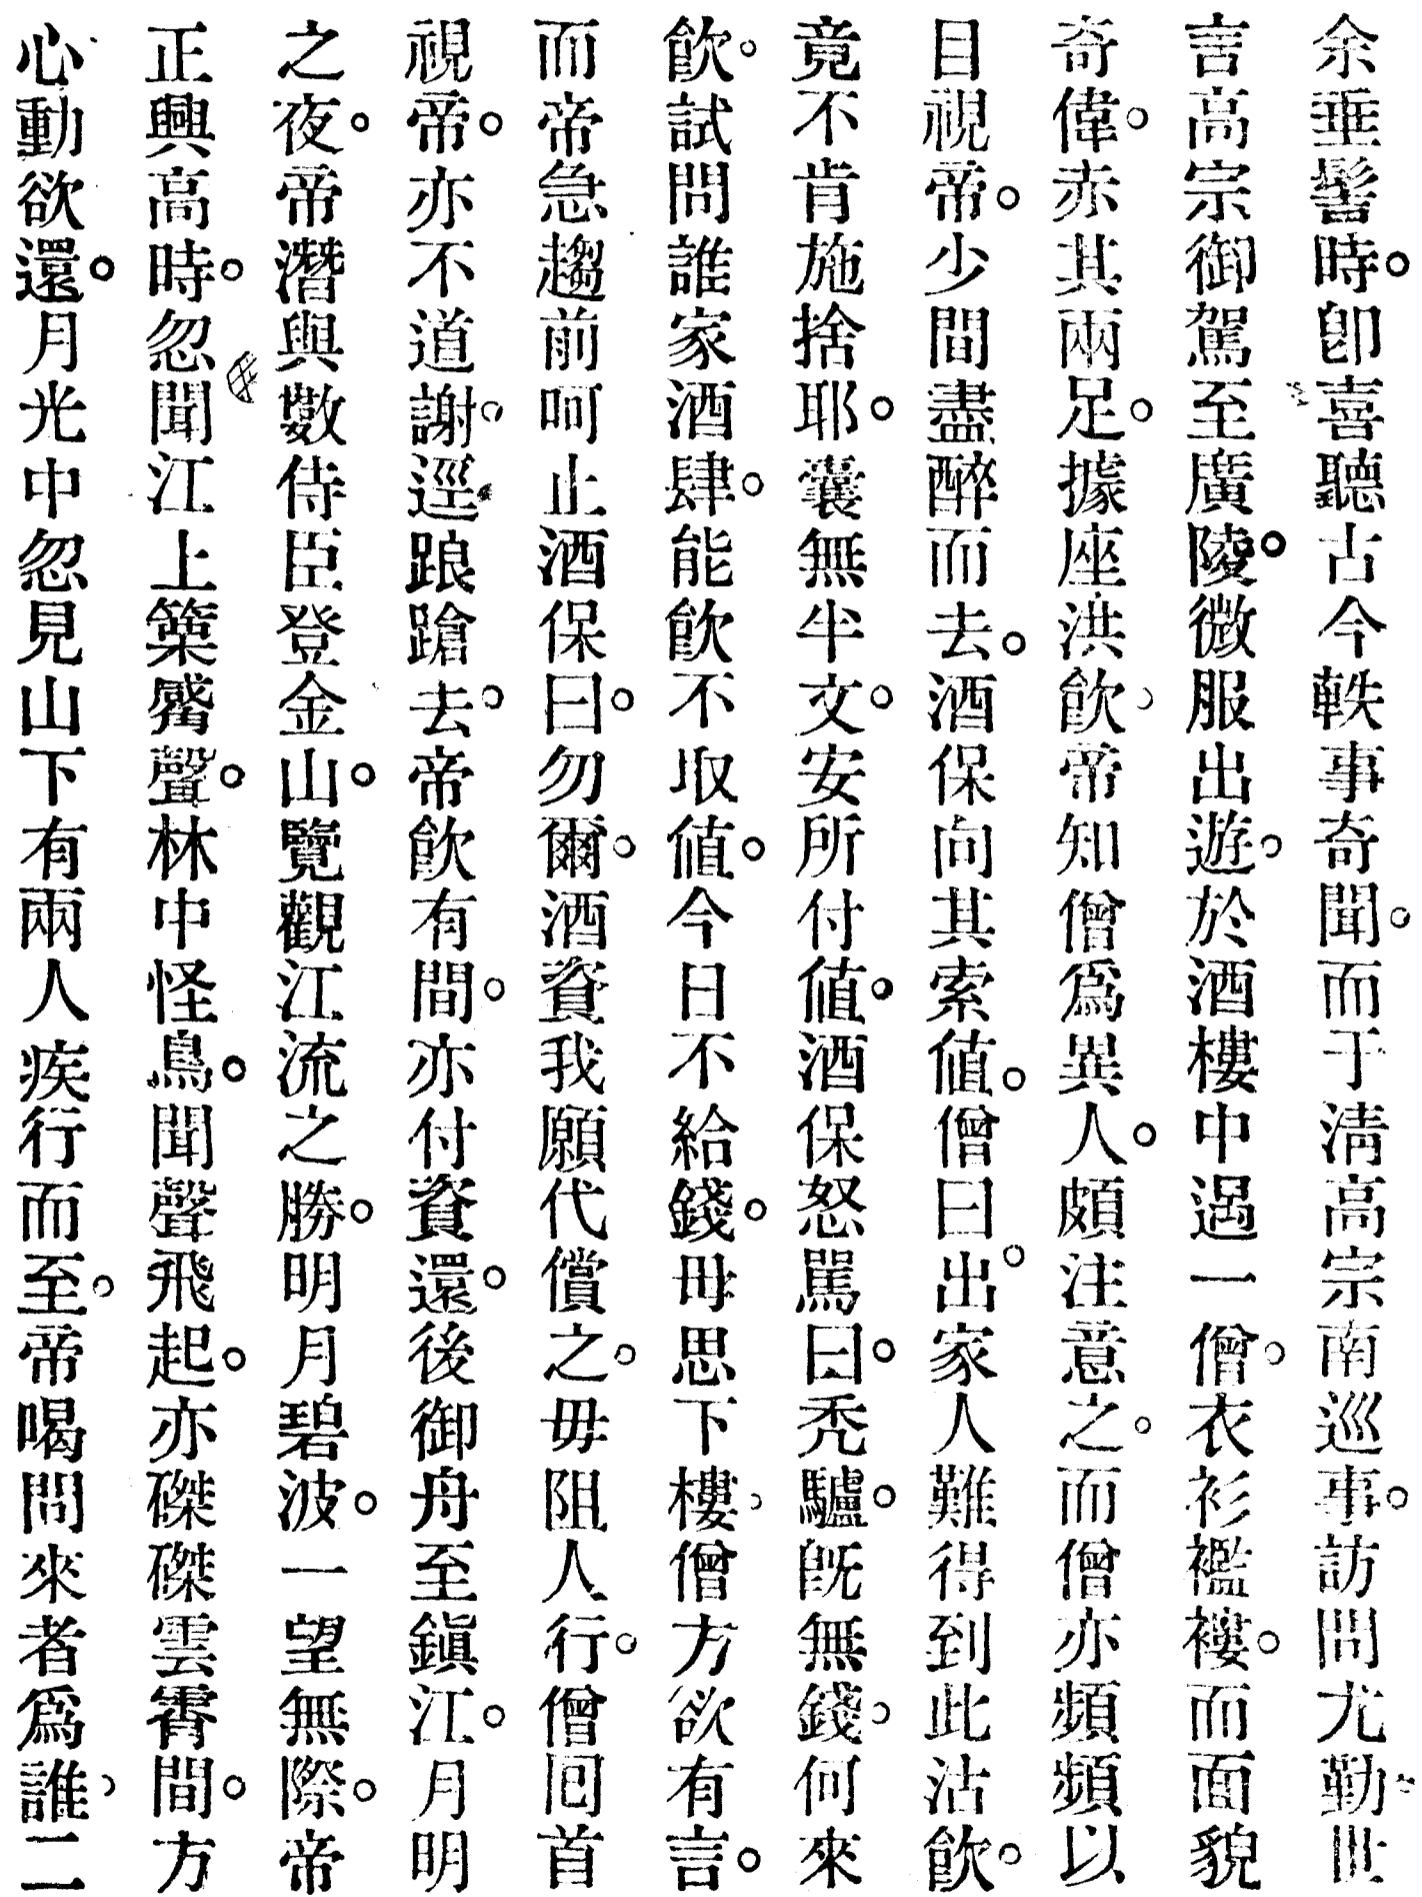 余垂髫時。卽喜聽古今軼事奇聞。而于淸高宗南巡事。訪問尤勤。世
言高宗御駕至廣陵。微服出遊。於酒樓中遇一僧。衣衫襤褸。而面貌
奇偉。赤其兩足。據座洪飮。帝知僧爲異人。頗注意之。而僧亦頻頻以
目視帝。少間盡醉而去。酒保向其索値。僧曰。出家人難得到此沽飮。
竟不肯施捨耶。囊無半文。安所付値。酒保怒罵曰。禿驢。旣無錢。何來
飮。試問誰家酒肆。能飮不取値。今日不給錢。毋思下樓。僧方欲有言。
而帝急趨前呵止酒保曰。勿爾。酒資我願代償之。毋阻人行。僧囘首
視帝。亦不道謝。逕踉蹌去。帝飮有間。亦付資還。後御舟至鎭江。月明
之夜。帝潛與數侍臣登金山。覽觀江流之勝。明月碧波。一望無際。帝
正興高時。忽聞江上篥觱聲。林中怪鳥。聞聲飛起。亦磔磔雲霄間。方
心動欲還。月光中忽見山下有兩人疾行而至。帝喝問來者爲誰。二